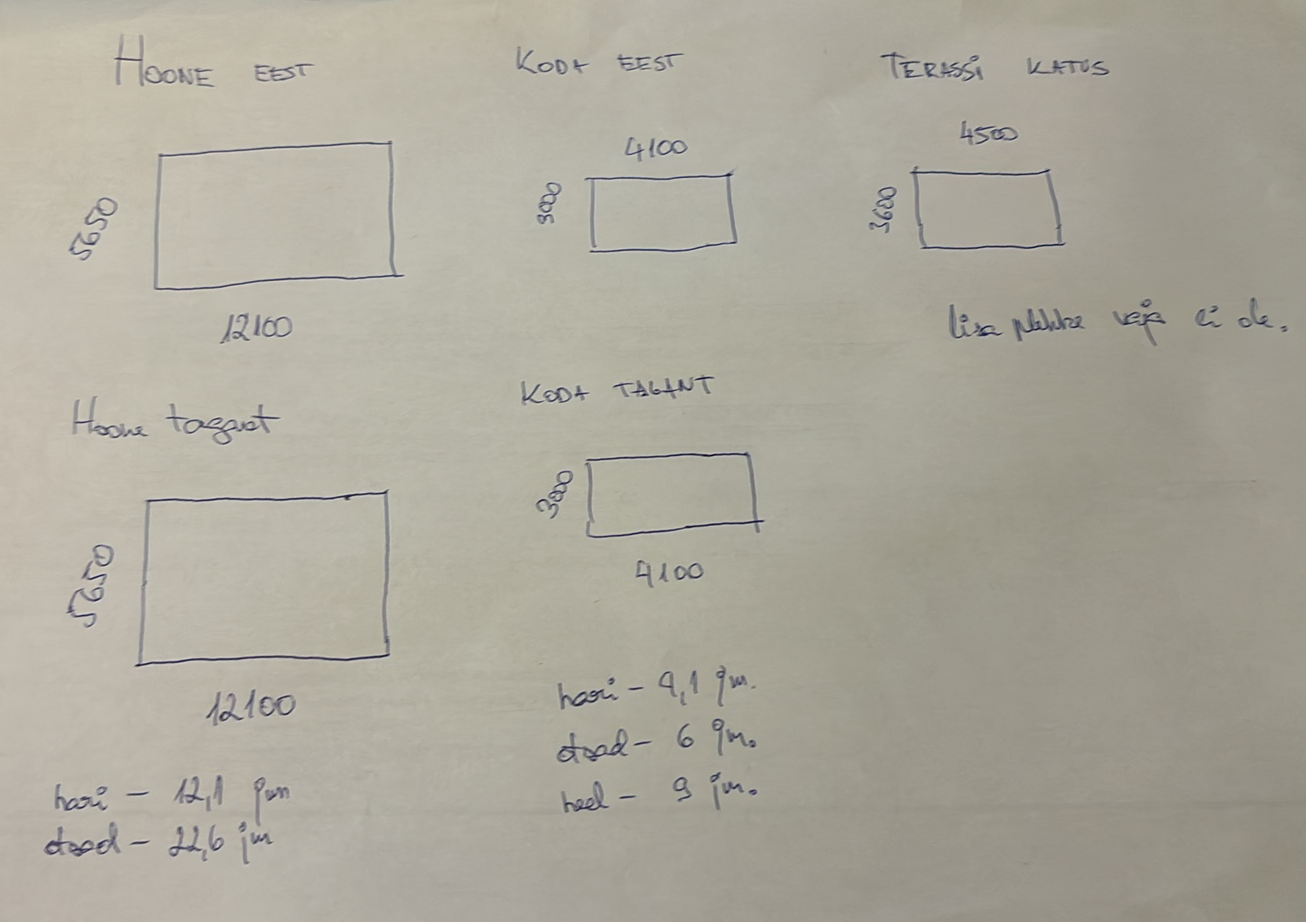 HOONE EEST
5650
12100
KODA EEST
4100
3000
TERASSI KATUS
4500
3600
lisa plekke vaja ei ole.
Hoone tagant
5650
12100
KODA TAGANT
3000
4100
hari - 12,1 jm
otsad - 22,6 jm
hari - 4,1 jm.
otsad - 6 jm.
neel - 9 jm.